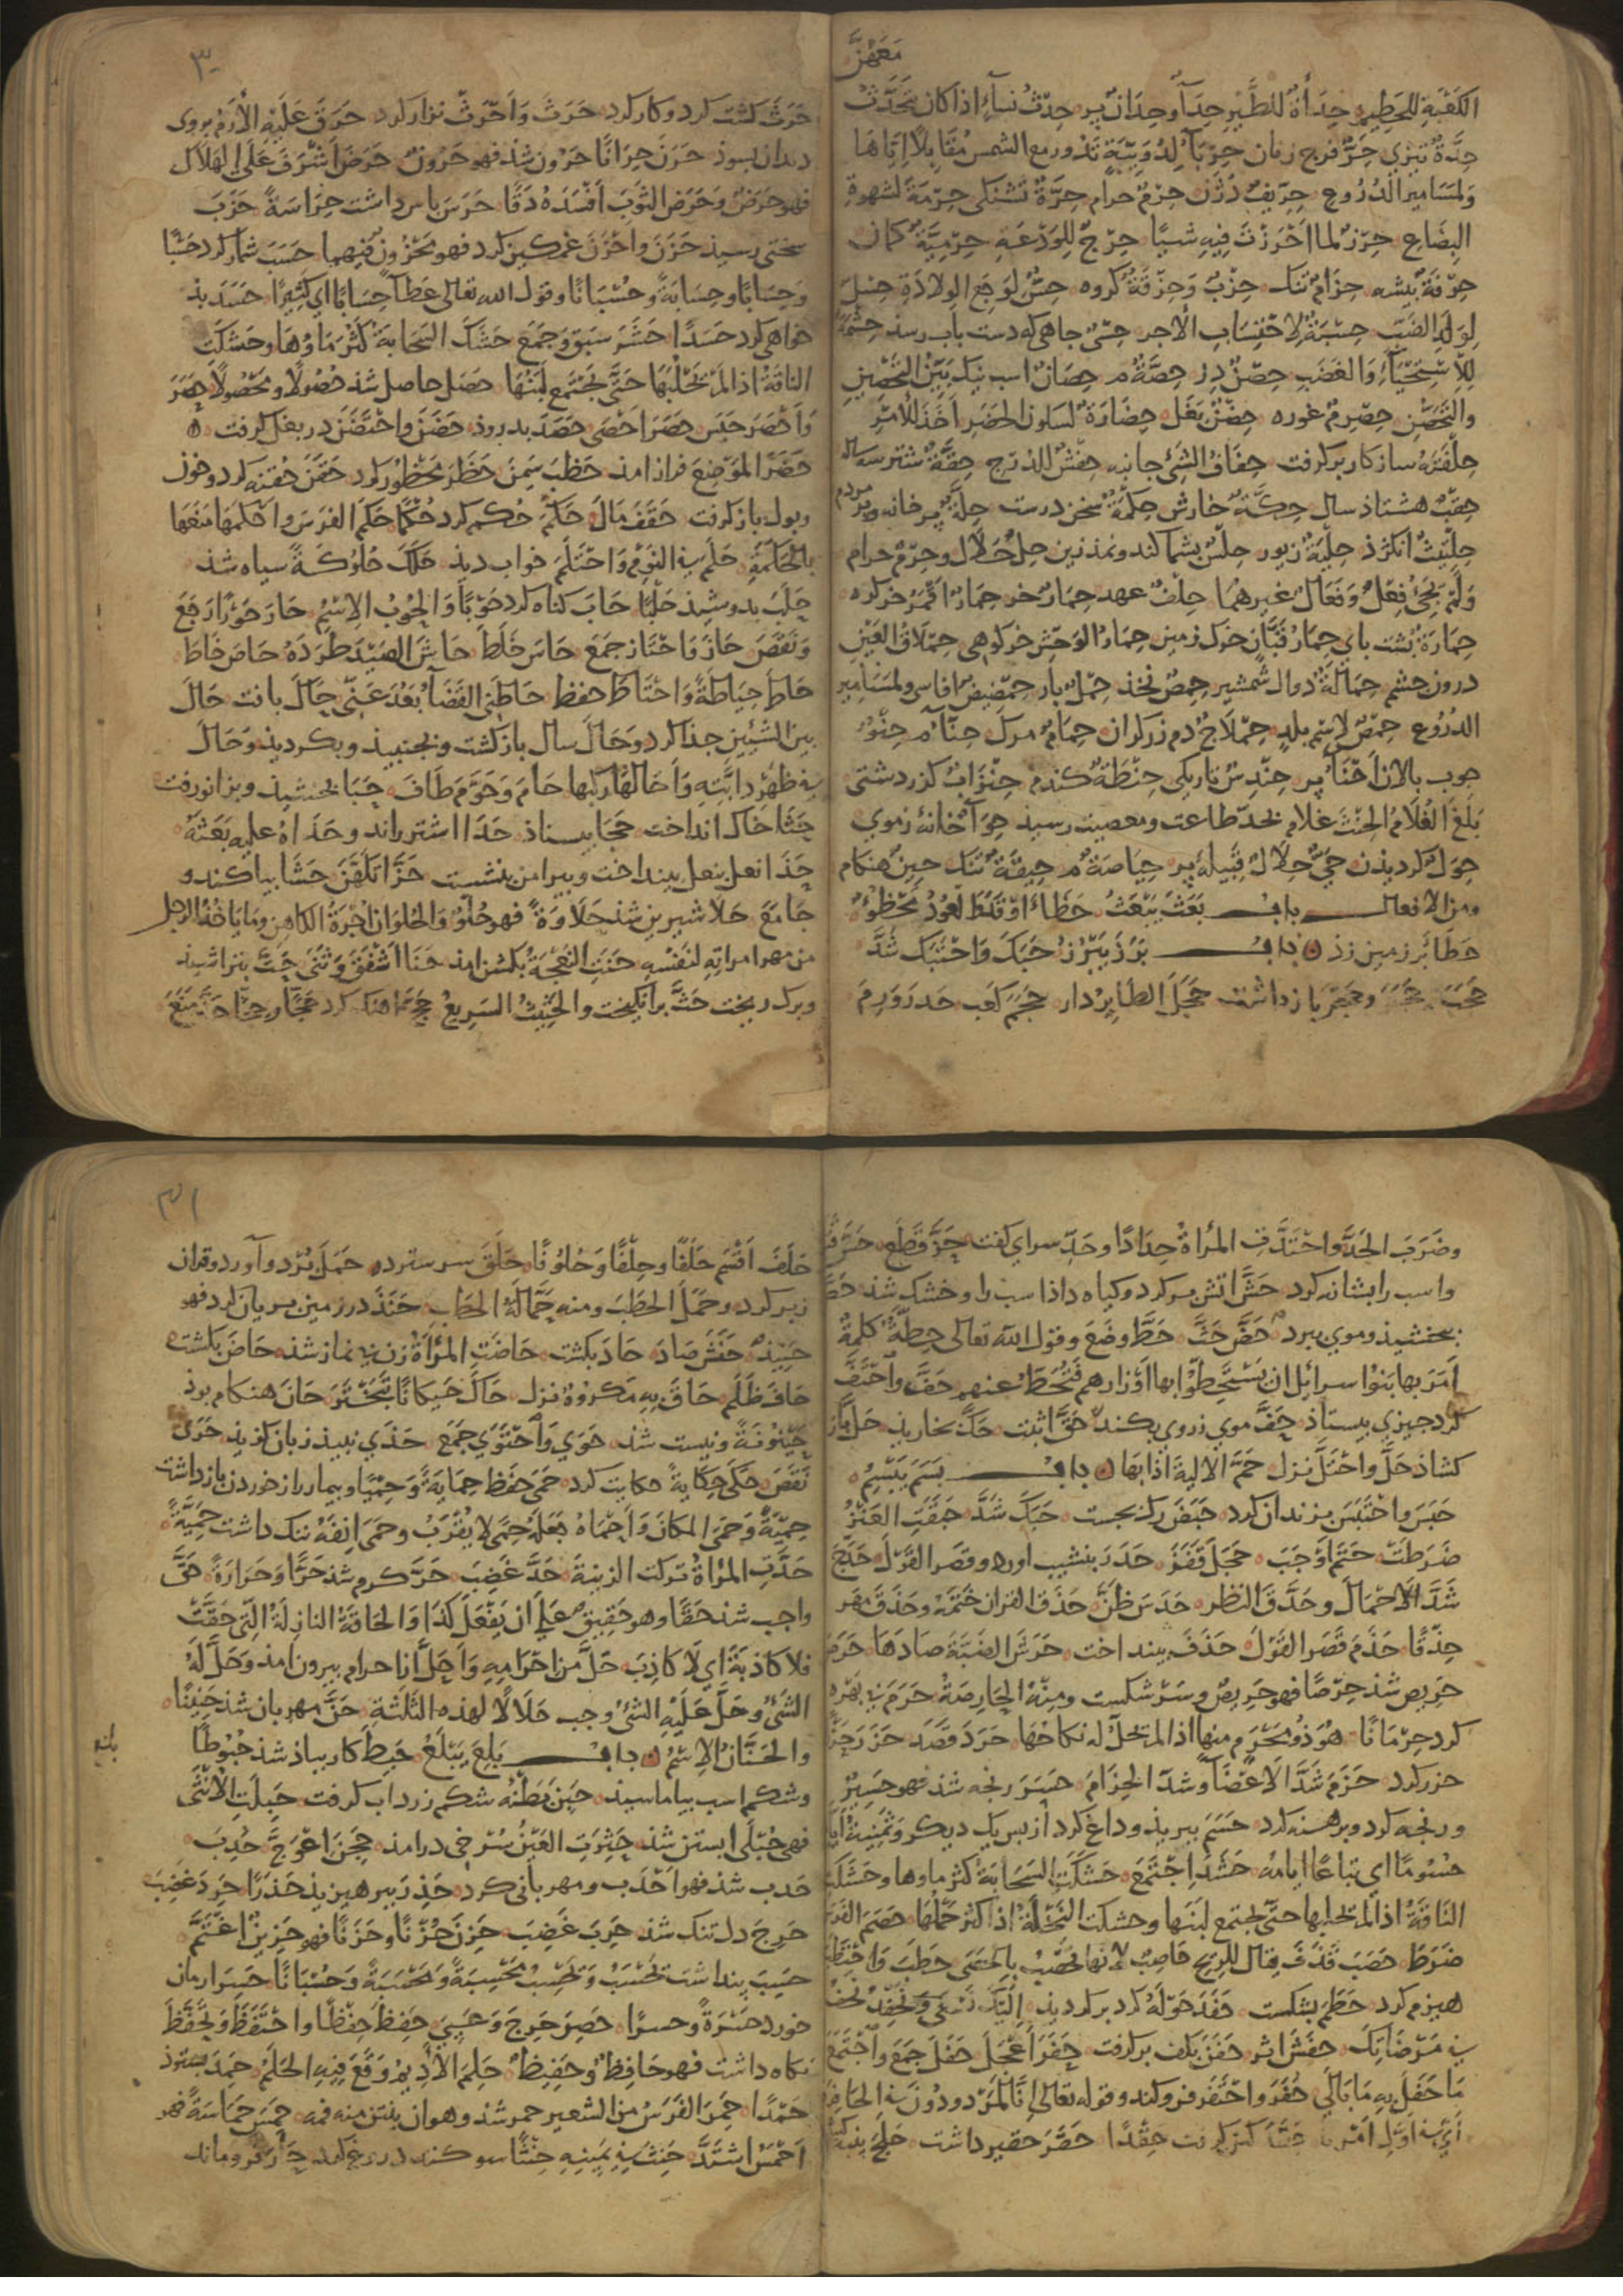 مَعَهُنَّ
الكَعْبَةِ للحَطِيم حِدَأَةٌ للطَّيْرِ حِدَأٌ وحِدَانٌ پر حِدْثُ نِسَآءٍ اذا كان يَتَحَدَّثُ
حِدَّةٌ تيزي حِرٌ فرج زنان حِرْبَآءُ لِدُوَيْبَّةٍ تَدُور مع الشمس مُقَابِلًا اِيَّاهَا
ولمسَامير الدُرُوع حِرِّيفٌ حِرْمٌ حرام حِرَّةٌ تشنكى حِرْمَةٌ لشهوةِ
البِضَاع حِرْزٌ لما اَحْرَزْتَ فِيهِ شيًا حِرْجٌ للوَدْعَةِ حِرْمِيَّةٌ كمان
حِرْفَةٌ پيشه حِزَامٌ تنك حِزْبٌ وَحِزْقَةٌ كروه حِسٌّ لوَجَع الوِلَادَةِ حِسْلٌ
لِوَلَدِ الضَبِّ حِسْبَةٌ لِاحْتِسَابِ الأجر حِسْىٌ جاهى كه دست بآب رسد حِشْمَةٌ
لِلِاسْتِحْيَآءِ وَالغَضَبِ حِصْنٌ دز حِصَّةٌ م حِصَانٌ اسب نيك بَيِّنُ التَحْصِينِ
والتَحَصُّنِ حِصْرِمٌ غوره حِضْنٌ بَغَل حِضَارَةٌ لسكون الحَضَرِ اَخَذَ للأمْرِ
حِلْفَتَهُ ساز كار بر كرفت حِفَافُ الشَئِ جانبه حِفْشٌ للدُرج حِقَّةٌ شتر سه ساله
حِقْبٌ هشتاد سال حِكَّةٌ خارش حِكْمَةٌ سخن درست حِلَّةٌ پر خانه وپر مردم
حِلْتِيتٌ انكژد حِلْيَةٌ زيور حِلْسٌ پشماكند ونمدزين حِلٌّ حَلَال وحِرْمٌ حرام
وَلَمْ يَجِئْ فِعْلٌ وَفَعَالٌ غيرهُمَا حِلْفٌ عهد حِمَارٌ خر حِمَارٌ اَقْمَر خر كره
حِمَارَةٌ پشت پاي حِمَارُ قَبَّان خرك زمين حِمَارُ الوَحْش خر كوهى حِمْلَاقُ العَيْنِ
درون چشم حِمَالَةٌ دوال شمشير حِمْصٌ نخذ حِمْلٌ بار
الدُرُوع حِمْصٌ لِاسْمِ بلدٍ حِمْلَاجٌ دم زركران حِمَامٌ مرك حِنَّآءٌ م حِنْوٌ
چوب پالان اَحْنَآءٌ پر حِنْدِسٌ تاريكى حِنْطَةٌ كندم حِنْزَابٌ كزر دشتى
بَلَغَ الغُلَامُ الحِنْثَ غلام بحدّ طاعت ومعصيت رسيد حِوَآءٌ خانهٔ ز موي
حِوَلٌ كرديدن حَيٌّ حِلَالٌ قَبِيلَهُ پر حِيَاصَةٌ م حِيقَةٌ تنك حِينٌ هنكام
ومن الافعال باب بَعَثَ يَبْعَثُ حَطَأَ
حَطَا بر زمين زد باب بَرَزَ يَبْرُزُ حَبَكَ وَاحْتَبَكَ شَدَّ
حَجَبَ حَجَزَ وحَجَرَ باز داشت حَجَلَ الطَايِرُ دار حَجَمَ كعَب حَدَرَ وَرِمَ
٣٠
حَرَثَ كشت كرد وكار كرد حَرَثَ وَاَحْرَثَ نزار كرد حَرَقَ عَلَيْهِ الأُرَّمَ بروى
دندان بسوذ حَرَنَ حِرَانًا حَرُون شذ فهو حَرُونٌ حَرَضَ اَشْرَفَ عَلَى الهَلَاك
فهو حَرَضٌ وَحَرَضَ الثَوْبَ اَفْسَدَهُ دَقًّا حَرَسَ باس داشت حِرَاسَةً حَزَبَ
سختى رسيذ حَزَنَ واَحْزَنَ غمكين كرد فهو مَحْزُونٌ فيهما حَسَبَ شمار كرد حَسْبًا
وَحِسَابًا وحِسَابَةً وحُسْبَانًا وقول الله تعالى عَطَآءً حِسَابًا اى كَثِيرًا حَسَدَ بذ
خواهى كرد حَسَدًا حَشَرَ سَبَقَ وَجَمَعَ حَشَكَ السَحَابَةُ كَثُرَ مَاوُهَا وحَشَكَتِ
الناقَةُ اذا لَمْ تَحْلُبْهَا حَتَّى يَجْتَمِعَ لَبَنُهَا حَصَلَ حاصل شذ حُصُولًا ومَحْصُولًا حَصَرَ
وَاَحْصَرَ حَبَسَ حَصَرَ احْصَى حَصَدَ بدروذ حَضَنَ واحْتَضَنَ در بغل كرفت
حَضَرَ المَوْضِعَ فراز امذ حَظَبَ سَمِنَ حَظَرَ مَحْظُور كرد حَقَنَ حُقنه كرد وخون
وبول باز كرفت حَقَفَ مَالَ حَكَمَ حُكم كرد حُكْمًا حَكَمَ الفَرَسَ وَاَحْكَمَهَا مَنَعَهَا
بالحَكَمَةِ حَلَمَ فى النَوْمِ وَاحْتَلَمَ خواب ديذ حَلَكَ حُلُوكَةً سياه شذ
حَلَبَ بدوشيذ حَلْبًا حَابَ كناه كرد حَوْبًا وَالحُوبُ الاِسْمُ حَارَ حَوْرًا رَجَعَ
وَنَقَصَ حَازَ وَاحْتَازَ جَمَعَ حَاسَ خَلَطَ حَاشَ الصَيْدَ طَرَدَهُ حَاصَ خَاطَ
حَاطَ حِيَاطَةً وَاحْتَاطَ حفظ حَاطَنِى القَضَآءُ بَعُدَ عَنِّى حَاكَ بافت حَالَ
بين الشَئَيْنِ جذا كرد وحَالَ سال باز كشت وبجنبيذ وبكرديذ وَحَالَ
فى ظَهْرِ دابَّتِهِ وَاَحَالَهَا رَكِبَهَا حَامَ وَحَوَّمَ طَافَ حَبَا بخشيذ وبزانو رفت
حَثَا خاك انداخت حَجَا بيستاذ حَدَا اشتر راند وحَدَاهُ عليه بَعَثَهُ
حَذَا نعل بنعل بينداخت وپيرامن بنشست حَزَا تَكَهَّنَ حَشَا بياكند و
جَامَعَ حَلَا شيرين شذ حَلَاوَةً فهو حُلْوٌ وَالحُلوَانُ اُجْرَةُ الكاهن وَمَا يَاخُذُ الرجل
من مهر امراتِهِ لنَفْسِهِ حَنَتِ النَعْجَةُ بكشن امذ حَنَا اشْفَقَ وَثَنَى حَتَّ بتراشيذ
وبرك ريخت حَثَّ برانكيخت والحَثِيثُ السَرِيعُ حَجَّ اهنك كرد حَجًّا وحِجًّا حَدَّ مَنَعَ
وضَرَبَ الحَدَّ واحْتَدَّتِ المَرْاَةُ حِدَادًا وحَدّ سراي كفت حَزَّ قَطَعَ
واسب را بشانه كرد حَشَّ اتش بر كرد وكياه داذ اسب را وخشك شذ
بخشيذ وموي ببرد حَضَّ حَثَّ حَطَّ وضَعَ وقول الله تعالى حِطَّةٌ كلمةٌ
اُمِرَ بها بَنُوا اسرائل ان يَسْتَحِطُّوْا بها اَوْزارهم فتُحَطُّ عنهم حَفَّ واحْتَفَّ
كرد چيزى بيستاذ حَفَّ موي ز روى بكند حَقَّ اثبت حَكَّ بخاريذ حَلَّ باز
كشاذ حَلَّ واحْتَلَّ نزل حَمَّ الالية اَذَابَهَا باب بَسَمَ يَبْسِمُ
حَبَسَ واحْتَبَسَ بزندان كرد حَبَضَ رك بجست حَبَكَ شَدَّ حَبَقَتِ العَنْزُ
ضَرَطَتْ حَتَمَ اَوْجَبَ حَجَلَ قَفَزَ حَدَرَ بنشيب اورد وقصر القَزَلَ حَدَجَ
شَدَّ الاَحْمَالَ وحَدَّقَ النظر حَدَسَ ظَنَّ حَذَقَ القران خَتَمَهُ وحَذَقَ مَهَر
حِذْقًا حَذَمَ قَصَرَ القَوْلَ حَذَفَ بينداخت حَرَشَ الضَبَّةَ صَادَهَا
حَرِيص شذ حِرْصًا فهو حَرِيصٌ وسَر شكست ومِنْهُ الحَارِصَةُ حَرَمَ بى بَهْره
كرد حِرْمَانًا هُوَ ذُو مَحْرَمٍ منها اذا لم تحلّ له نكاحُهَا حَرَدَ قَصَدَ حَزَرَ
حزر كرد حَزَمَ شَدَّ الاَعْضَآءَ وشَدّ الحِزَامَ حَسَرَ رنجه شذ فهو حَسِيرٌ
ورنجه كرد وبرهنه كرد حَسَمَ ببريذ وداغ كرد از پس يك ديكر وَثَمٰنِيَةَ اَيَّامٍ
حُسُومًا اي تباعًا ايامه حَشَدَ اجْتَمَعَ حَشَكَتِ السَحَابَةُ كثر ماوها وحَشَكَتِ
النَاقَةُ اذا لَمْ تحلبها حتى يجتمع لبَنُها وحشكت النَخْلَةُ اذا كثُرَ حَمْلُهَا حَصَمَ
ضَرَطَ حَصَبَ قَذَفَ يقال للريح حَاصِبٌ لانها تَحْصِبُ بالحَصَى حَطَبَ وَاحْتَطَبَ
هيزم كرد حَطَمَ بشكست حَفَدَ حَوْلَهُ كرد بر كرديذ اِلَيْكَ نَسْعَى وَنَحْفِدُ
فى مَرْضَاتِكَ حَفَشَ اثر حَفَنَ بكف بر كرفت حَفَزَ اَعْجَلَ حَفَلَ جَمَعَ واجْتَمَعَ
مَا حَفَلَ بِهِ مَا بَالَى حَفَرَ واحْتَفَرَ فرو كند وقوله تعالى اِنَّا لَمَرْدودُونَ فى الحَافِرَةِ
اي فى اوّل امرنا حَقَدَ كين كرفت حِقْدًا حَقَرَ حقير داشت حَلَجَ پنبه
٣١
حَلَفَ اَقْسَمَ حَلْفًا وحِلْفًا وَحَلُوفًا حَلَقَ سر ستردن حَمَلَ بُرد وآورد وقران
زبر كرد وحَمَلَ الحَطَبَ ومنه حَمَّالَةَ الحَطَبِ حَنَذَ در زمين بريان كرد فهو
حَنِيذٌ حَنَشَ صَادَ حَادَ بكشت حَاضَتِ المَرْاَةُ زن بى نماز شذ حَاصَ بكشت
حَافَ ظَلَمَ حَاقَ بِهِ مَكْرُوهٌ نزل حَاكَ حَيَكَانًا تَبَخْتَرَ حَانَ هنكام بوذ
حَيْنُونَةً ونيست شذ حَوَي وَاحْتَوَي جَمَعَ حَذَى نبيذ زبان كزيذ حَرَى
نَقَصَ حَكَى حِكَايَةً حكايت كرد حَمَى حَفِظَ حِمَايَةً وَحِمْيًا وبيمار را از خوردن باز داشت
حِمْيَةً وَحَمَى المكانَ وَاَحْمَاهُ جَعَلَهُ حِمًى لا يُقْرَبُ وحَمَى اَنِفَةً ننك داشت حَمِيَّةً
حَدَّتِ المَرْاةُ تركت الزينةَ حَدَّ غَضِبَ حَرَّ كرم شذ حَرًّا وَحَرَارَةً حَقَّ
واجب شذ حَقًّا وهو حَقِيق على اَن يَفْعَلَ كَذَا وَالحَاقَّةُ النازِلَةُ الَّتِى حَقَّتْ
فلا كَاذبَةَ اي لَا كَاذِبَ حَلَّ من اِحْرَامِهِ وَاَحَلَّ از احرام بيرون امذ وَحَلَّ لَهُ
الشَئُ وحَلَّ عَلَيْهِ الشئُ وجب حَلَالًا لهذه الثَلٰثَةِ حَنَّ مهربان شذ حَنِينًا
والحَنَانُ الاِسْمُ باب بَلِعَ يَبْلَعُ حَبِطَ كار بباذ شذ حُبُوطًا
وشكم اسب بياماسيذ حَبِنَ بَطْنُهُ شكم زرداب كرفت حَبِلَتِ الاُنْثَى
فهى حُبْلَى ابستن شذ حَثِرَتِ العَيْنُ سُرخى درامذ حَجِنَ اعْوَجَّ حَدِبَ
حدب شذ فهو اَحْدَب ومهربانى كرد حَذِرَ بپرهيزيذ حَذَرًا حَرِدَ غَضِبَ
حَرِجَ دل تنك شذ حَرِبَ غَضِبَ حَزِنَ حُزْنًا وحَزَنًا فهو حَزِينٌ اغْتَمَّ
حَسِبَ پنداشت يَحْسَبُ ويَحْسِبُ مَحْسِبَةً ومَحْسَبَةً وَحُسْبَانًا حَسِرَ ارمان
خورد حَسْرَةً وحسرًا حَصِرَ حَرِجَ وَعَيِيَ حَفِظَ حِفْظًا واحْتَفَظَ وتَحَفَّظَ
نكاه داشت فهو حَافِظٌ وحَفِيظٌ حَلِمَ الاَدِيمُ وَقَعَ فِيهِ الحَلَمُ حَمِدَ بستوذ
حَمْدًا حَمِرَ الفَرَسُ من الشعير حمر شذ وهو ان ينتن منه فمه حَمِسَ حَمَاسَةً فهو
اَحْمَسُ اشتَدَّ حَنِثَ فى يَمِينِهِ حِنْثًا سوكند دروغ كرد حَارَ فرو ماند